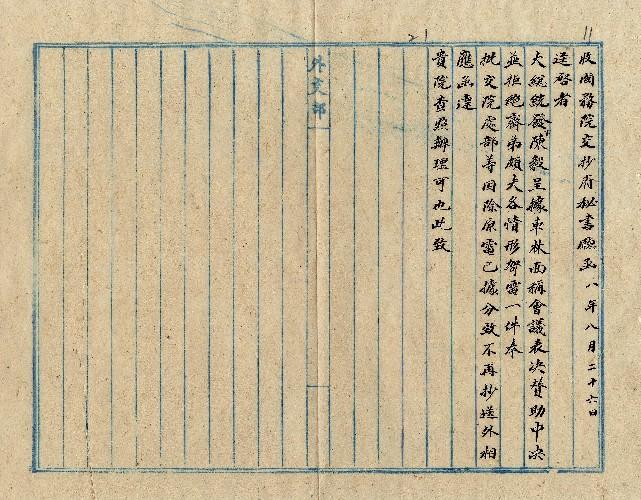 11
21
收國務院交抄府秘書廳函 八年八月二十六日
逕啓者
大總統發陳毅呈據車林面稱會議表决贊助中央
並拒絕齊弟頗夫各情形聲電一件奉
批交院處部等因除原電已據分致不再抄送外相
應函達
貴院查照辦理可也此致
外交部